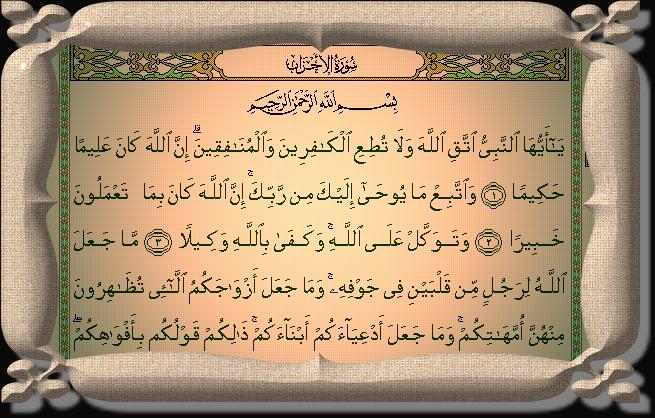 سُورَةُ الأَحْزَابِ
بِسْمِ ٱللَّهِ ٱلرَّحْمَٰنِ ٱلرَّحِيمِ
يَـٰٓأَيُّهَا ٱلنَّبِىُّ ٱتَّقِ ٱللَّهَ وَلَا تُطِعِ ٱلْكَـٰفِرِينَ وَٱلْمُنَـٰفِقِينَ ۗ إِنَّ ٱللَّهَ كَانَ عَلِيمًا
حَكِيمًا ١ وَٱتَّبِعْ مَا يُوحَىٰٓ إِلَيْكَ مِن رَّبِّكَ ۚ إِنَّ ٱللَّهَ كَانَ بِمَا تَعْمَلُونَ
خَبِيرًا ٢ وَتَوَكَّلْ عَلَى ٱللَّهِ ۚ وَكَفَىٰ بِٱللَّهِ وَكِيلًا ٣ مَّا جَعَلَ
ٱللَّهُ لِرَجُلٍ مِّن قَلْبَيْنِ فِى جَوْفِهِۦ ۚ وَمَا جَعَلَ أَزْوَٰجَكُمُ ٱلَّـٰٓـِٔى تُظَـٰهِرُونَ
مِنْهُنَّ أُمَّهَـٰتِكُمْ ۚ وَمَا جَعَلَ أَدْعِيَآءَكُمْ أَبْنَآءَكُمْ ۚ ذَٰلِكُمْ قَوْلُكُم بِأَفْوَٰهِكُمْ ۖ